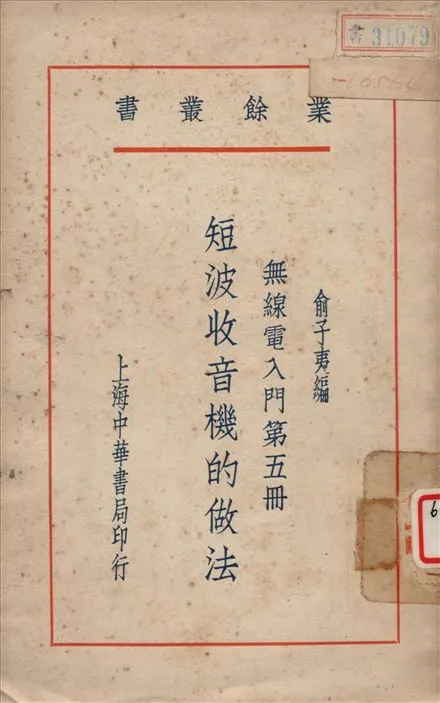 書 31079
業餘叢書
俞子夷編
無線電入門第五冊
短波收音機的做法
上海中華書局印行
6